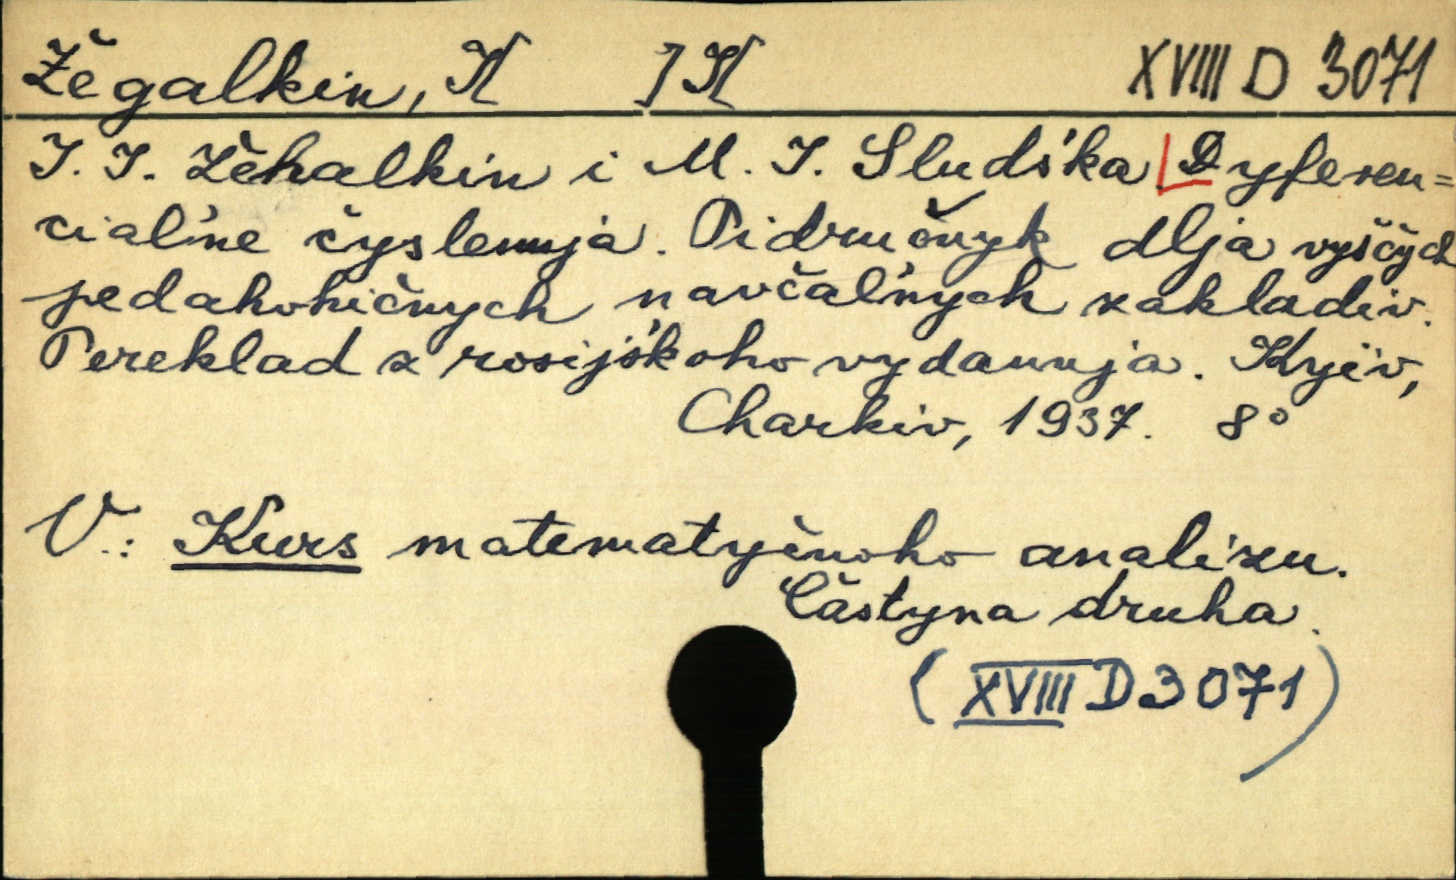 Žegalkin, И ]И XVIII D 3071
I. I. Žehalkin i M. I. Sluds'ka Dyferen=
cial'ne čyslennja. Pidručnyk dlja vyščych
pedahohičnych navčal'nych zakladiv.
Pereklad z rosijs'koho vydannja. Kyïv,
Charkiv, 1937. 8°
V.: Kurs matematyčnoho analizu.
Častyna druha.
(XVIII D 3071)